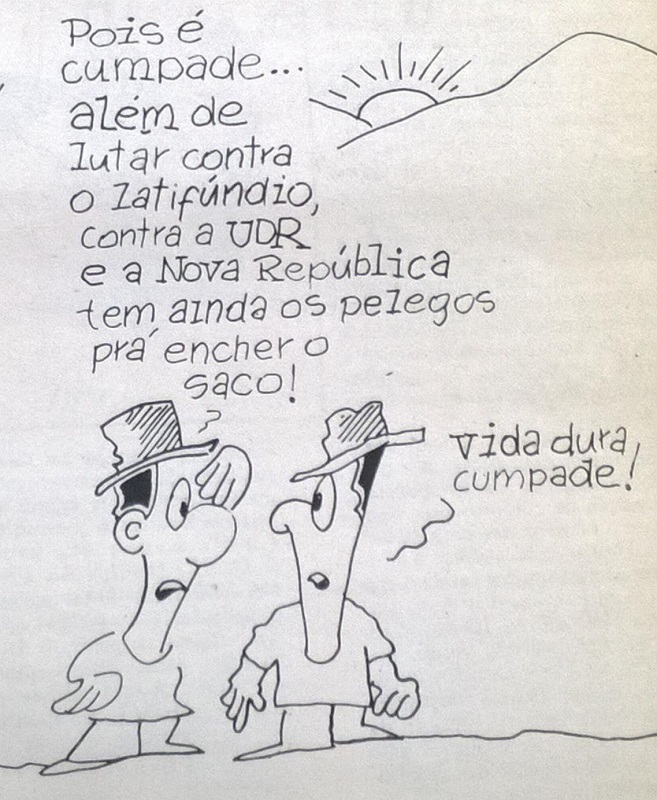 Pois é
cumpade...
além de
lutar contra
o latifúndio,
contra a UDR
e a Nova República
tem ainda os pelegos
prá encher o
saco!
vida dura,
cumpade!